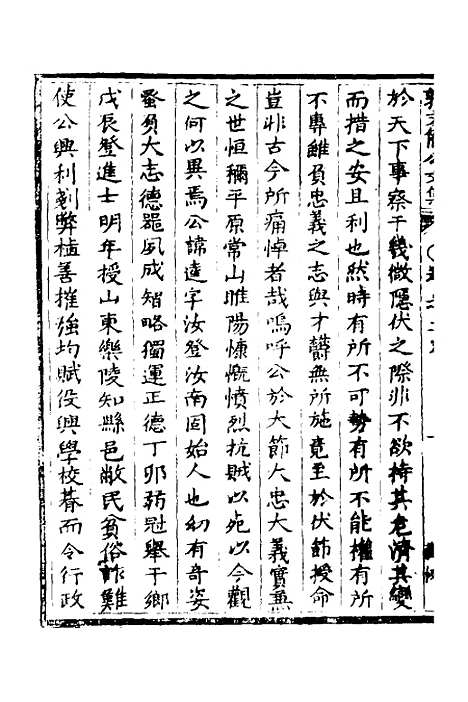 於天下事察于幾微隱伏之際非不欲持其危濟其變
而措之安且利也然時有所不可勢有所不能權有所
不專雖負忠義之志與才欝無所施竟至於伏節授命
豈非古今所痛悼者哉嗚呼公於大節大忠大義實兼
之世恒稱平原常山睢陽慷慨憤烈抗賊以死以今觀
之何以異焉公諱逵字汝登汝南固始人也幼有奇姿
蚤負大志德器夙成智略獨運正德丁卯弱冠舉于鄉
戊辰登進士明年授山東樂陵知縣邑敝民貧俗詐難
使公興利剗弊植善摧強均賦役興學校朞而令行政